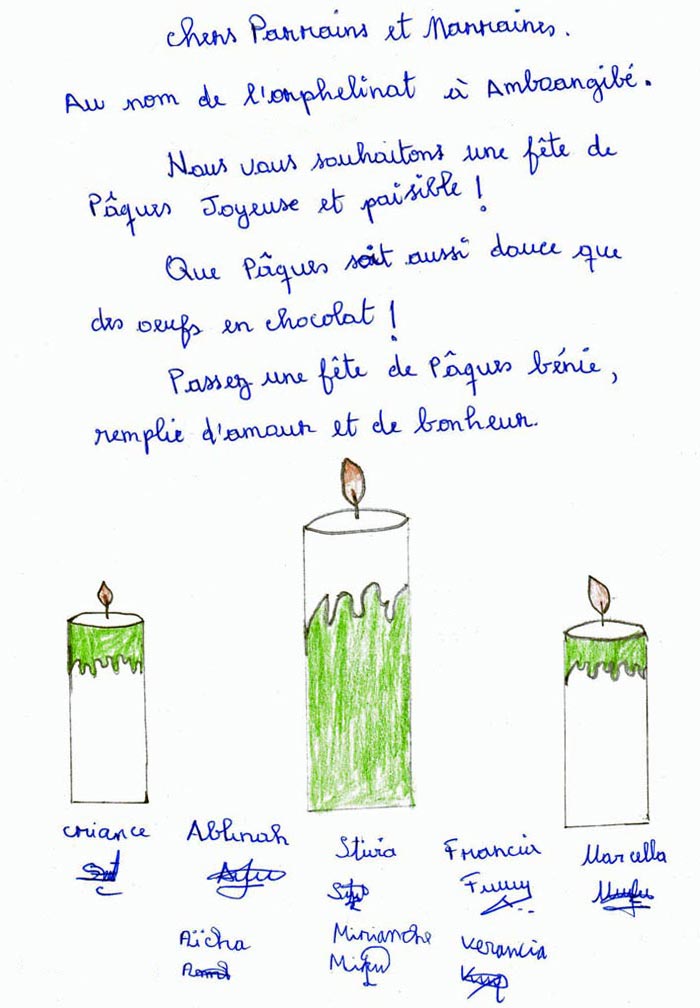 chers Parrains et Marraines.
Au nom de l'orphelinat à Amboangibé.
Nous vous souhaitons une fête de
Pâques Joyeuse et paisible !
Que Pâques soit aussi douce que
des oeufs en chocolat !
Passez une fête de Pâques bénie,
remplie d'amour et de bonheur.
criance Ablinah Stivia Francia Marcella
Aïcha Mirianche Verancia